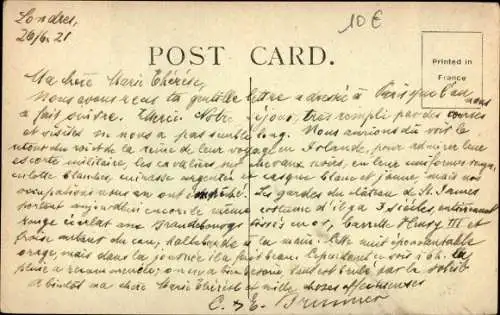 Londres,
26/6.21
10 €
POST CARD.
Printed in
France
Ma chère Marie Thérèse,
Nous avons reçu ta gentille lettre adressée à Paris que l'on nous
a fait suivre. Merci. Notre séjour, très rempli par des courses
et visites ne nous a pas semblé long. Nous avions du voir le
du roi et de la reine de leur voyage en Irlande, pour admirer leur
escorte militaire, les cavaliers sur chevaux noirs, en leur uniformes rouges,
culotte blanches, cuirasse argentée et casque blanc et jaune, mais nos
occupations nous en ont empêché. Les gardes du château de St. James
portent aujourd'hui encore le même costume d'il y a 3 siècles, entièrement
rouge écarlate avec
fraise autour du cou, hallebarde à la main. Cette nuit épouvantable
orage, mais dans la journée il a fait beau. Cependant ce soir à 6h. la
pluie a recommencé, on
A bientôt ma chère Marie Thérèse et mille choses affectueuses
C. & E.